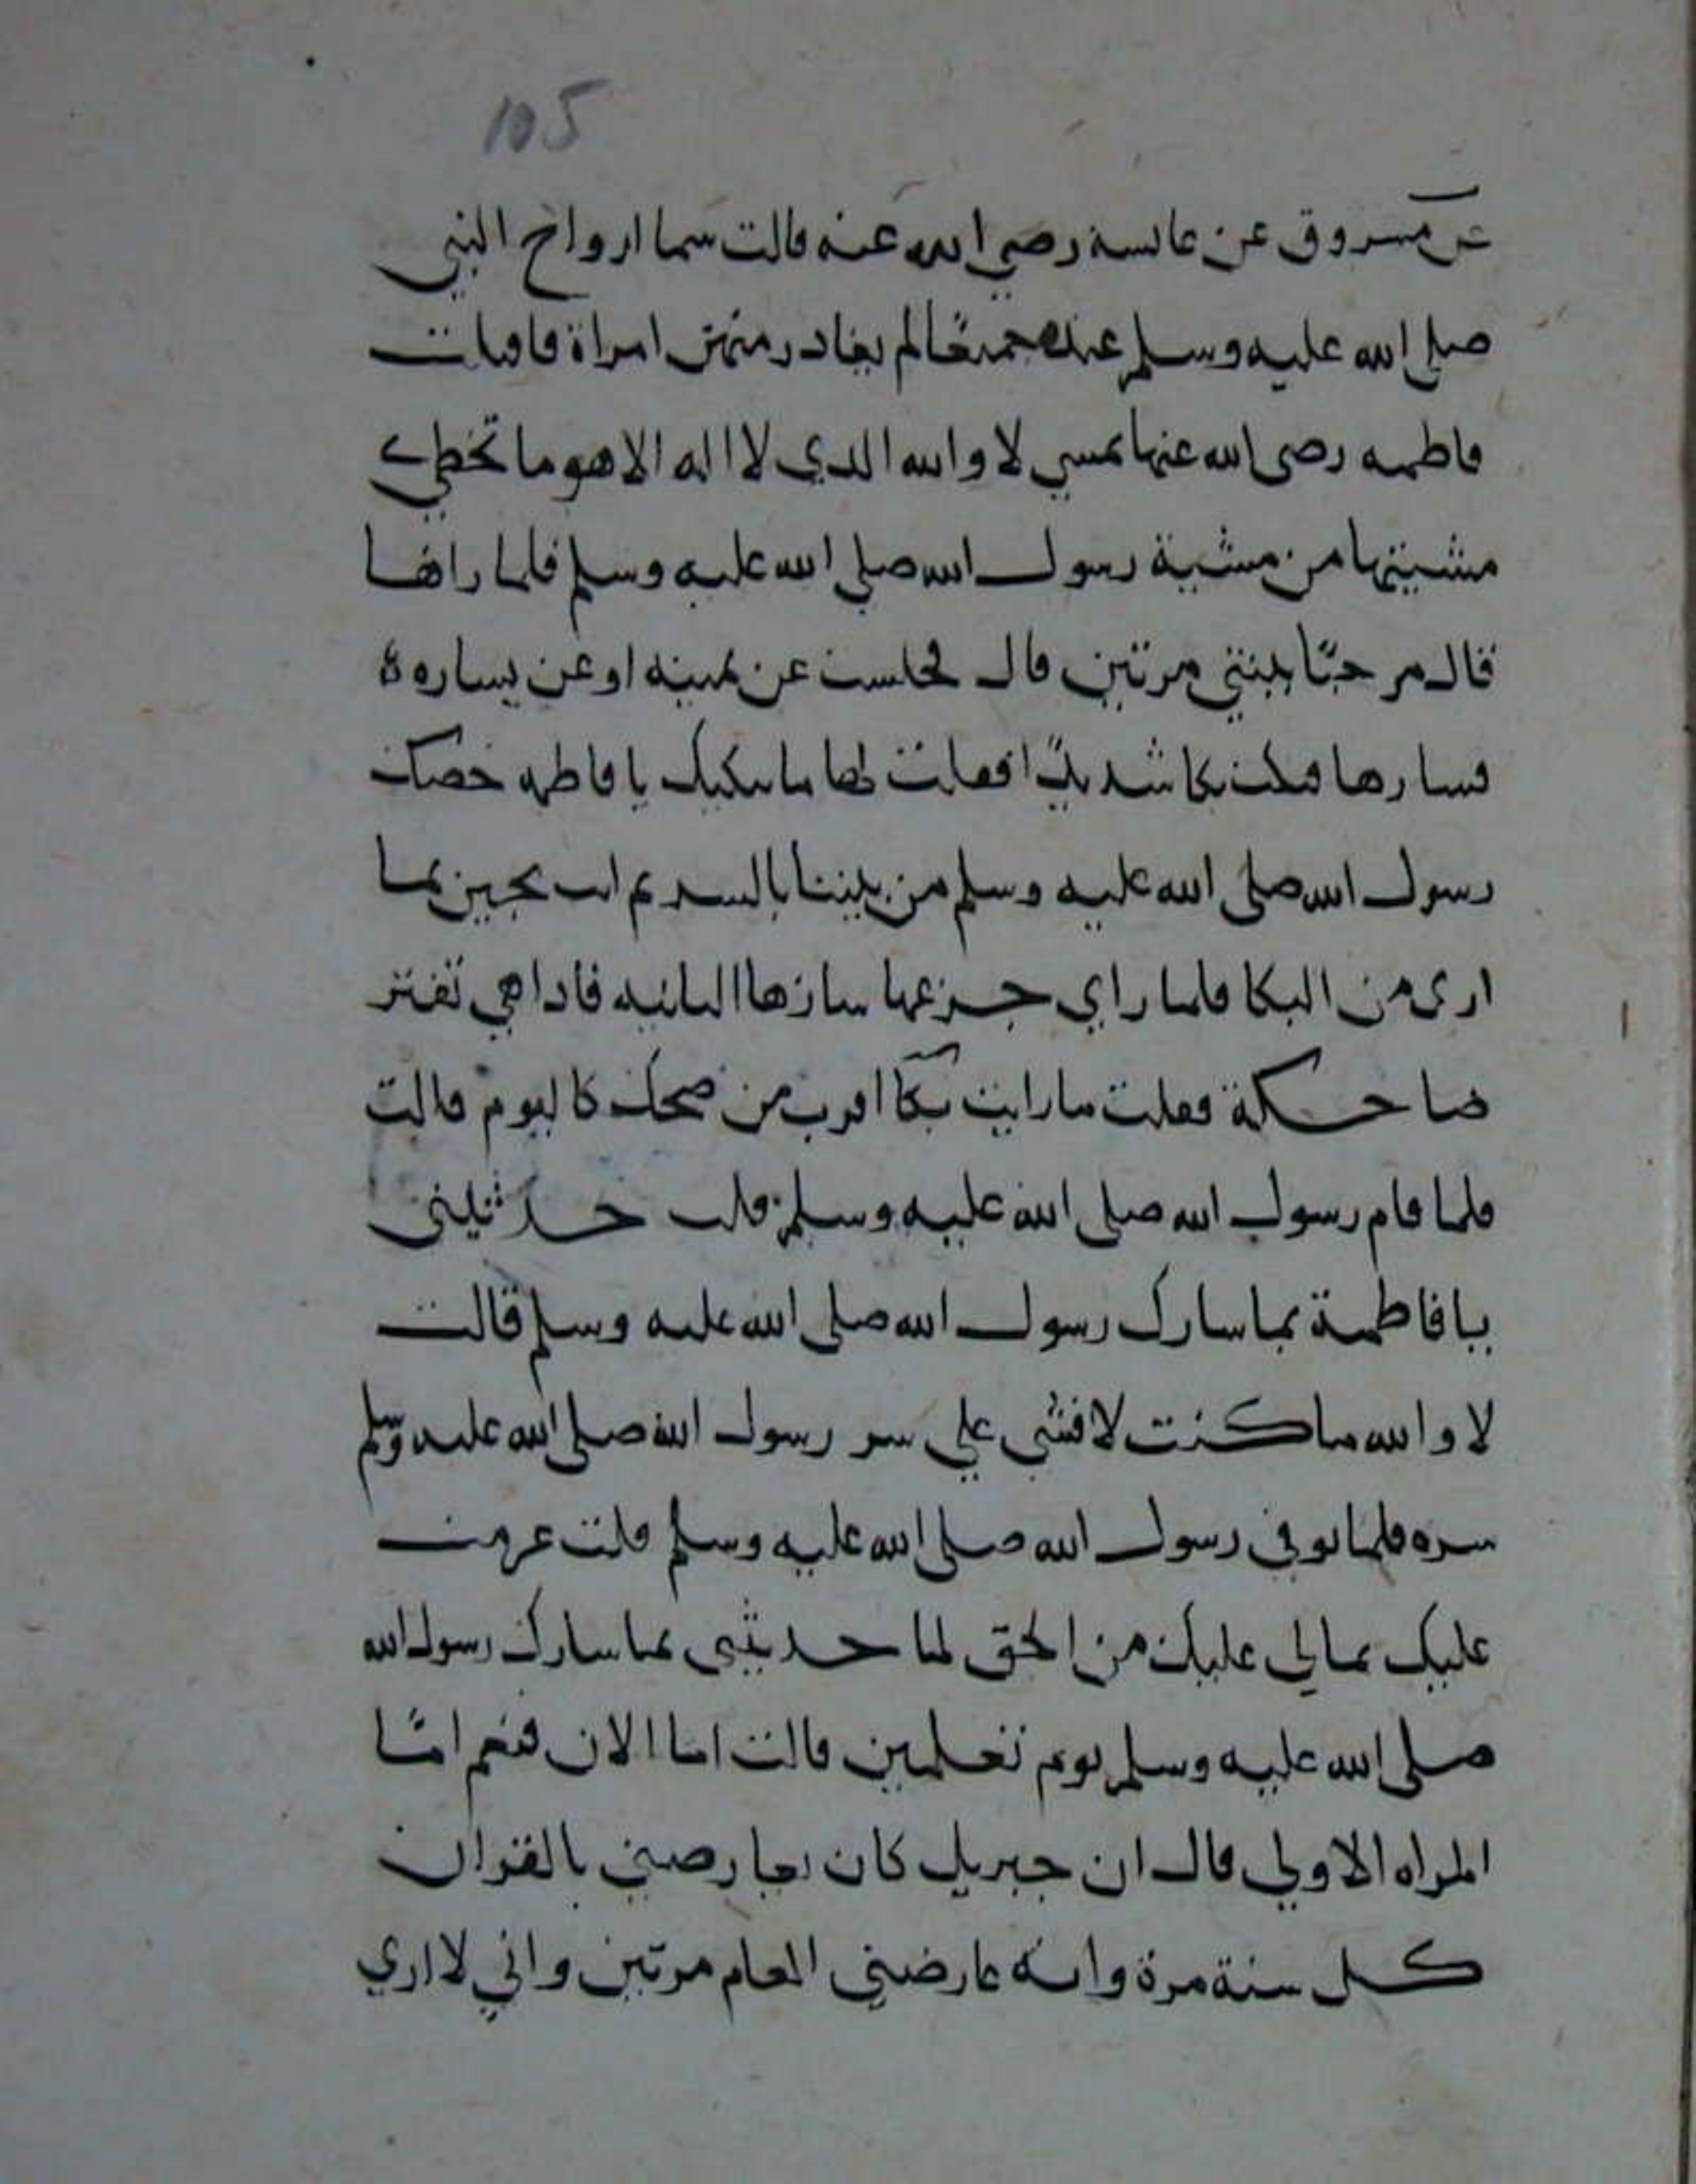 105
عن مسروق عن عائشة رضي الله عنه قالت بينما ازواج النبي
صلى الله عليه وسلم عنده جميعًا لم يغادر منهن امراة فاقبلت
فاطمه رضى الله عنها تمشي لا والله الذي لا اله الا هو ما تخطي
مشيتها من مشية رسول الله صلى الله عليه وسلم فلما راها
قال مرحبًا بابنتي مرتين قال فجلست عن يمينه او عن يساره
فسارها فبكت بكا شديدًا فقلت لها ما يبكيك يا فاطمه خصك
رسول الله صلى الله عليه وسلم من بيننا بالسر ثم انت تبكين بما
ارى من البكا فلما راي جزعها سارها الثانيه فاذا هي تفتر
ضاحكة فقلت ما رايت بكا اقرب من ضحك كاليوم قالت
فلما قام رسول الله صلى الله عليه وسلم قلت حدثيني
يا فاطمة بما سارك رسول الله صلى الله عليه وسلم قالت
لا والله ما كنت لافشي علي سر رسول الله صلى الله عليه وسلم
سره فلما توفي رسول الله صلى الله عليه وسلم قلت عزمت
عليك بما لي عليك من الحق لما حدثتيني بما سارك رسول الله
صلى الله عليه وسلم يوم تعلمين قالت اما الان فنعم امّا
المراه الاولي قال ان جبريل كان يعارضني بالقران
كل سنة مرة وانه عارضني العام مرتين واني لا اري